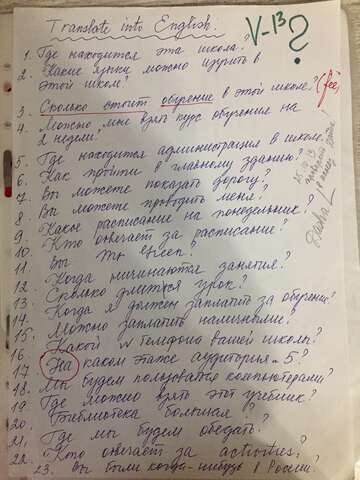 Translate into English.
V-13 ?
1. Где находится эта школа?
2. Какие языки можно изучить в
этой школе?
3. Сколько стоит обучение в этой школе? (fee)
4. Можно мне взять курс обучения на
2 недели?
5. Где находится администрация в школе?
6. Как пройти к главному зданию?
7. Вы можете показать дорогу?
8. Вы можете проводить меня?
9. Какое расписание на понедельник?
10. Кто отвечает за расписание?
11. Вы Mr Green?
12. Когда начинаются занятия?
13. Сколько длится урок?
14. Когда я должен заплатить за обучение?
15. Можно заплатить наличными?
16. Какой № телефона вашей школы?
17. На каком этаже аудитория 5?
18. Мы будем пользоваться компьютерами?
19. Где можно взять этот учебник?
20. Библиотека большая?
21. Где мы будем обедать?
22. Кто отвечает за activities?
23. Вы были когда-нибудь в России?